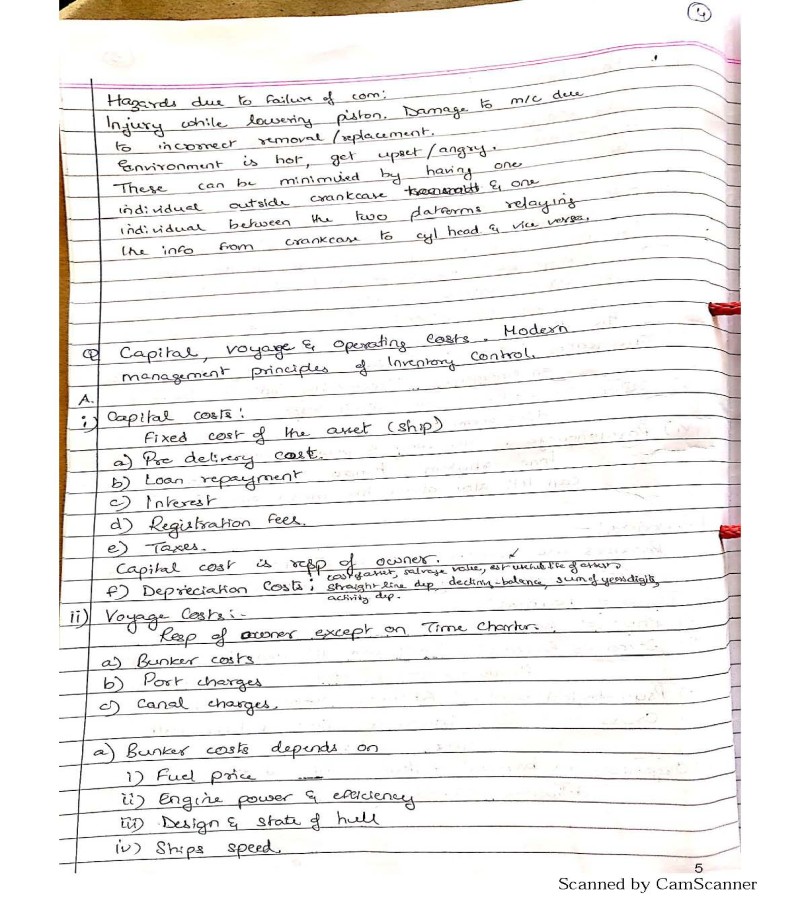 4
Hazards due to failure of com:
Injury while lowering piston. Damage to m/c due
to incorrect removal/replacement.
Environment is hot, get upset/angry.
These can be minimised by having one
individual outside crankcase & one
individual between the two platforms relaying
the info from crankcase to cyl head & vice versa.
Q Capital, voyage & operating costs. Modern
management principles of Inventory Control.
A.
i) Capital costs:
Fixed cost of the asset (ship)
a) Pre delivery cost.
b) Loan repayment
c) Interest
d) Registration fees.
e) Taxes.
Capital cost is resp of owner.
cost of asset, salvage value, est useful life of asset
f) Depreciation Costs: straight line dep, declining-balance, sum of years digits,
activity dep.
ii) Voyage Costs:-
Resp of owner except on Time Charter.
a) Bunker costs
b) Port charges
c) Canal charges.
a) Bunker costs depends on
i) Fuel price
ii) Engine power & efficiency
iii) Design & state of hull
iv) Ships speed.
5
Scanned by CamScanner